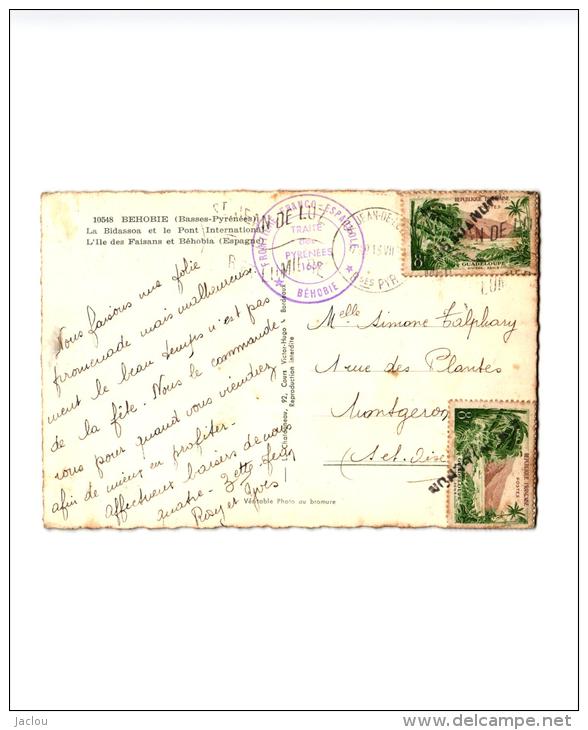 10548 BEHOBIE (Basses-Pyrénées)
La Bidassoa et le Pont International
L'Ile des Faisans et Béhobia (Espagne)
Nous faisons une jolie
promenade mais malheureuse-
ment le beau temps n'est pas
de la fête. Nous le commande
rons pour quand vous viendrez
afin de mieux en profiter.
Affectueux baisers de nous
quatre.
Rosy et Yves
FRONTIERE FRANCO-ESPAGNOLE
TRAITÉ
des
PYRENEES
1659
BÉHOBIE
JEAN-DE-LUZ
Bses PYR.
REPUBLIQUE FRANÇAISE
8F
GUADELOUPE
Melle Simone Talphary
1 rue des Plantes
Montgeron
(S. et. Oise)
8F
REPUBLIQUE FRANÇAISE
POSTES
Chatagneau, 92, Cours Victor-Hugo - Bordeaux
Reproduction interdite
Véritable Photo au bromure
Jaclou
www.delcampe.net